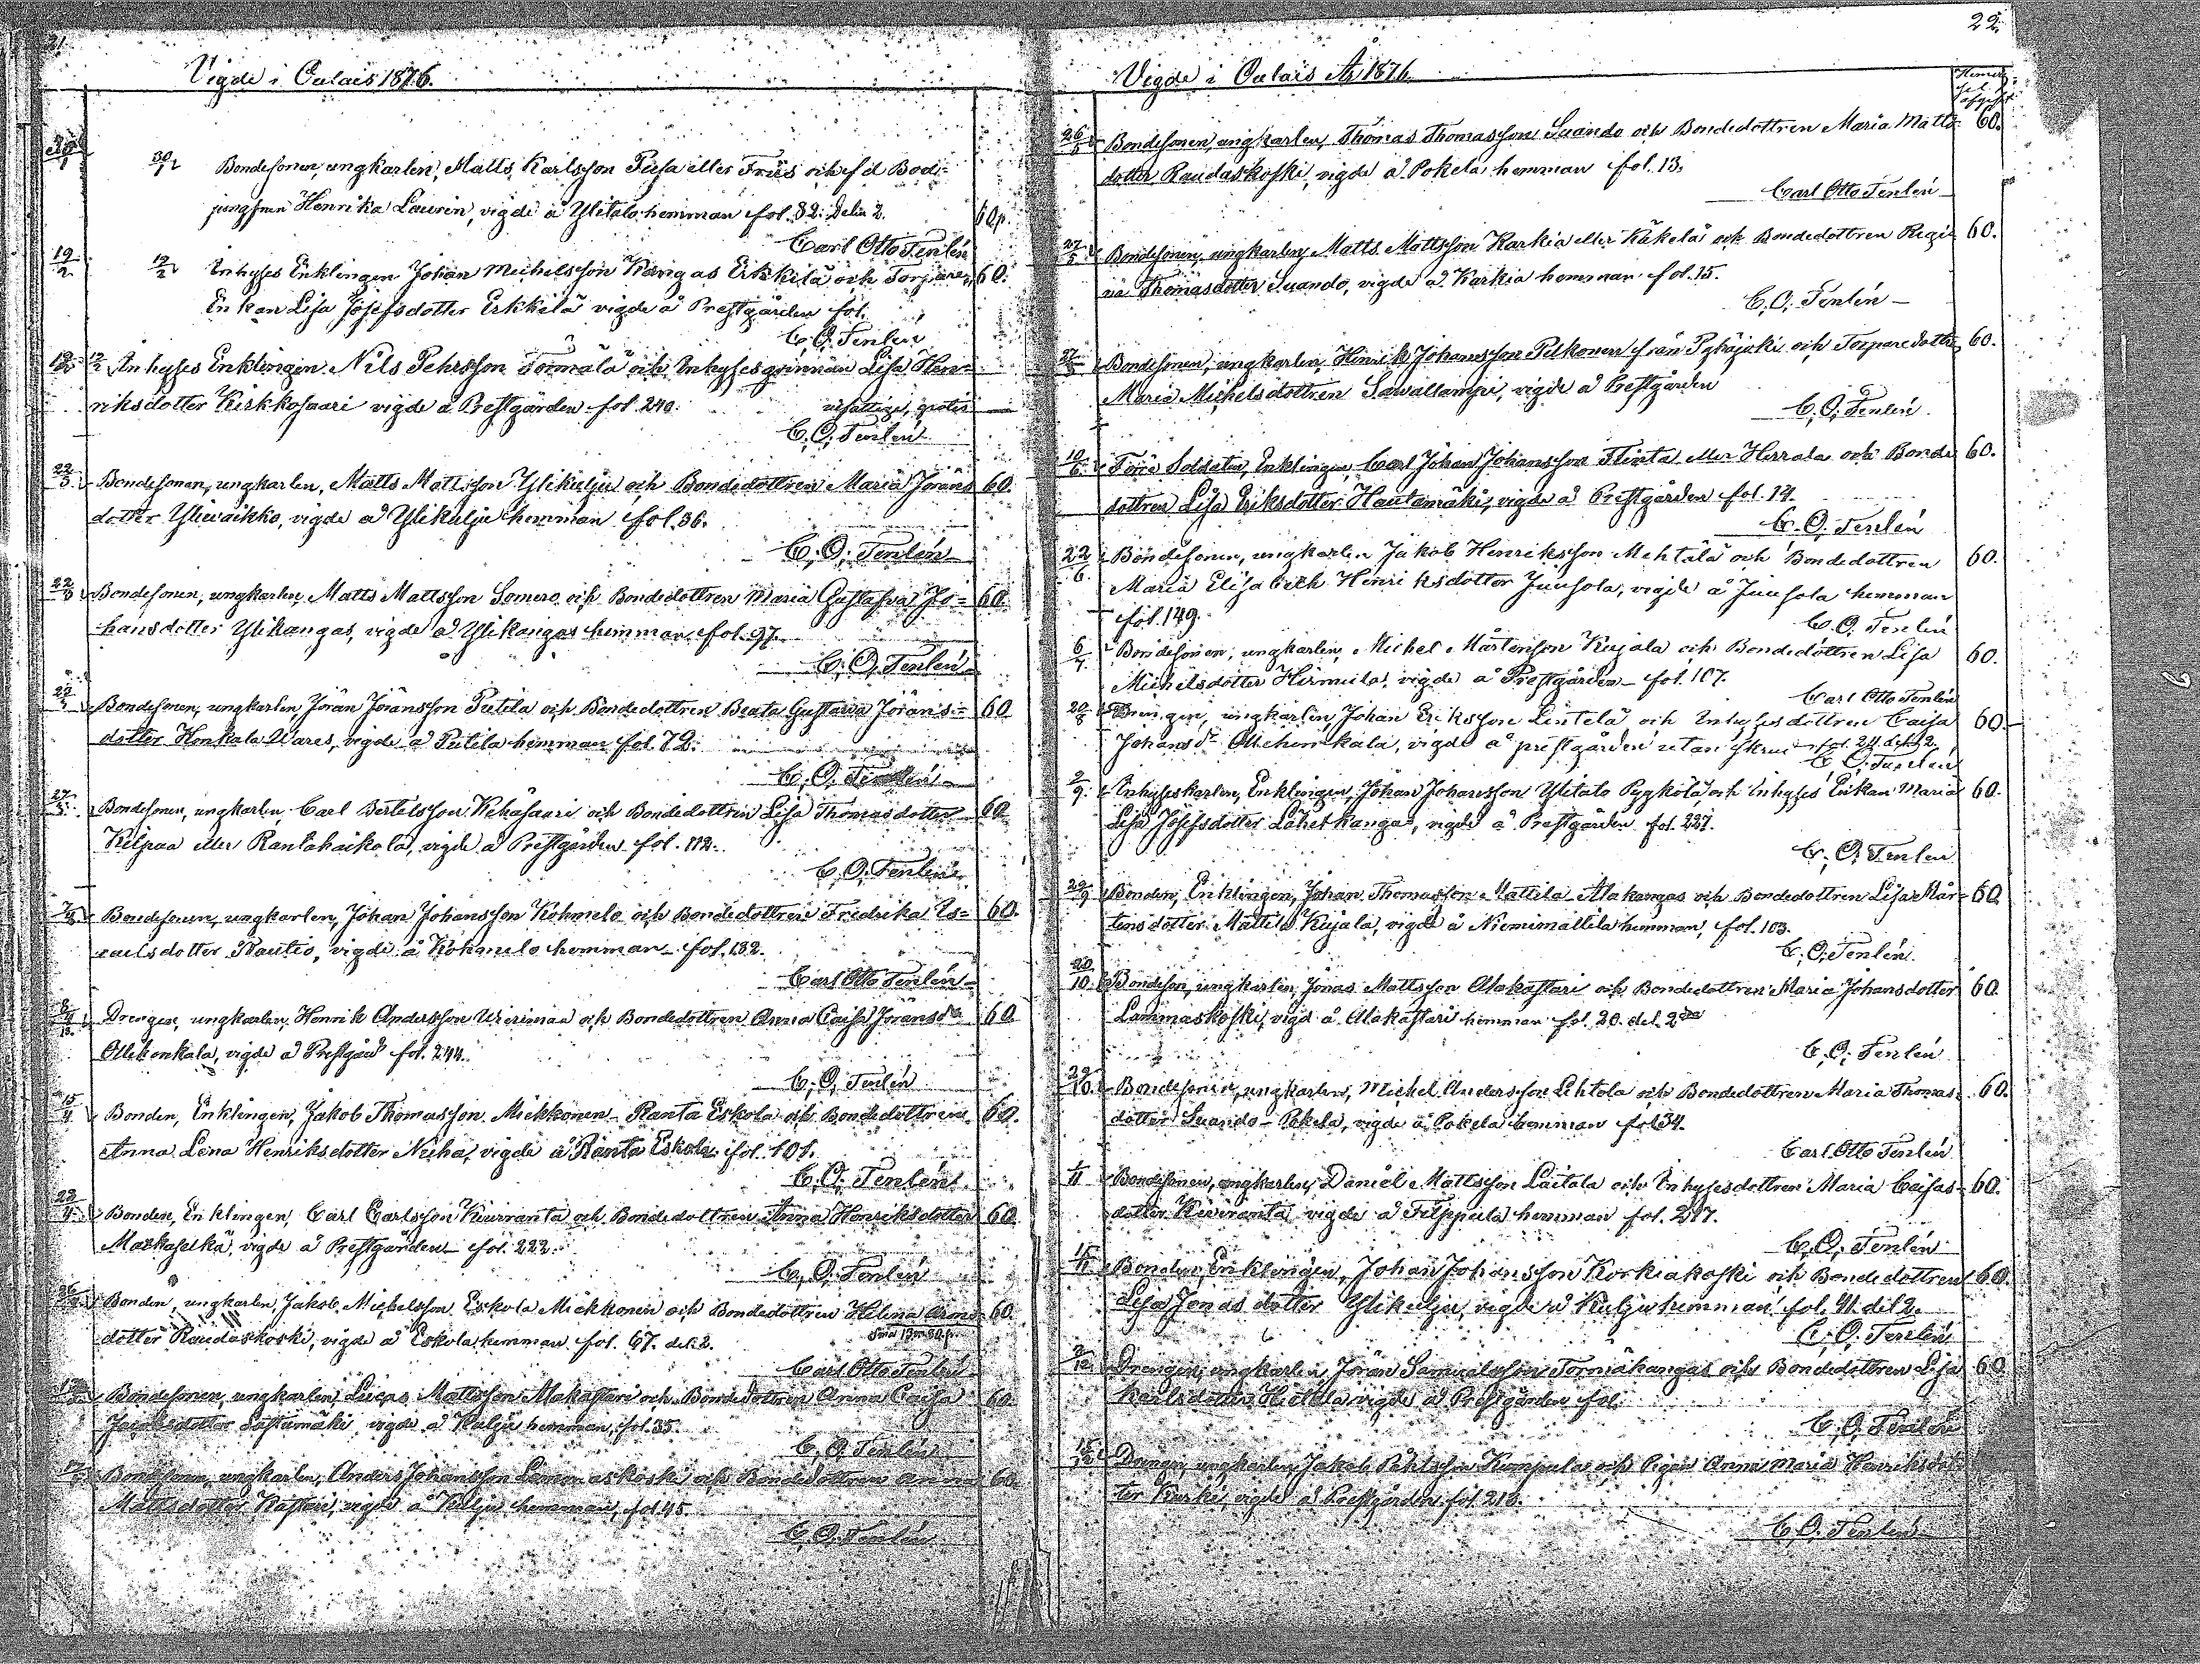 21
Vigde i Oulais 1876.
30/1 30/1 Bondesonen, ungkarlen, Matts Karlsson och f d Bod-
jungfrun Henrika Laurin, vigde å Ylitalo hemman fol. 82. Delen 2. 60p.
Carl Otto Tenlén
12/2 Inhyses Enklingen Johan Michelsson Kangas Erkkilä och Torpare 60.
Enkan Lisa Josefsdotter Erkkilä vigde å Prestgården fol.
C. O. Tenlén
12/2 Inhyses Enklingen Nils Pehrsson Tormälä och Inhysesqvinnan Lisa Hen-
riksdotter Kirkkosaari vigde å Prestgården fol. 240. utfattige, gratis —
C. O. Tenlén
22/3 Bondesonen, ungkarlen, Matts Mattsson Ylikulju och Bondedottren Maria Jörans 60.
dotter Ylievaikko, vigde å Ylikulju hemman fol. 36.
C. O. Tenlén
22/3 Bondesonen, ungkarlen, Matts Mattsson Somero och Bondedottren Maria Gustafva Jo- 60.
hansdotter Ylikangas, vigde å Ylikangas hemman fol. 97.
C. O. Tenlén
22/3 Bondesonen, ungkarlen, Jöran Jöransson Putila och Bondedottren Beata Gustava Jörans- 60
dotter Honkala Wares, vigde å Putila hemman fol. 72.
C. O. Tenlén
27/3 Bondesonen, ungkarlen Carl Bertelsson Kehäsaari och Bondedottren Lisa Thomasdotter 60
Kilpua eller Rantahaikola, vigde å Prestgården fol. 112.
C. O. Tenlén
Bondesonen, ungkarlen, Johan Johansson Kohmelo och Bondedottren Fredrika Es- 60.
raelsdotter Rautio, vigde å Kohmelo hemman fol. 132.
Carl Otto Tenlén
Drengen, ungkarlen Henrik Andersson och Bondedottren Anna Caisa Jöransdr 60
Ollihonkala, vigde å Prestgård fol. 244.
C. O. Tenlén
15/4 Bonden, Enklingen, Jakob Thomasson Mickkonen Ranta Eskola och Bondedottren 60.
Anna Lena Henriksdotter Niiha, vigde å Ranta Eskola fol. 101.
C. O. Tenlén
23/4 Bonden, Enklingen, Carl Carlsson Kiuiranta och Bondedottren Anna Henriksdotter 60
Matkaselkä, vigde å Prestgården fol. 222.
C. O. Tenlén
Bonden, ungkarlen, Jakob Michelsson Eskola Mickkonen och Bondedottren Helena 60.
dotter Raudaskoski, vigde å Eskola hemman fol. 67. del. 2.
Carl Otto Tenlén
Bondesonen, ungkarlen, Lucas Mattsson Alakastari och Bondedottren Anna Caisa 60.
Jacobsdotter Sastamäki, vigde å Kulju hemman, fol. 35.
C. O. Tenlén
Bondesonen, ungkarlen, Anders Johansson Lammaskoski och Bondedottren Anna 60.
Mattsdotter Kastari, vigde å Kulju hemman, fol. 45.
C. O. Tenlén
22.
Vigde i Oulais År 1876
26/5 Bondesonen, ungkarlen, Thomas Thomasson Suando och Bondedottren Maria Matts- 60.
dotter Raudaskoski, vigde å Pokela hemman fol. 13.
Carl Otto Tenlén
27/5 Bondesonen, ungkarlen, Matts Mattsson Karkia eller Käkelä och Bondedottren Regi- 60.
na Thomasdotter Suando, vigde å Karkia hemman fol. 15.
C. O. Tenlén
Bondesonen, ungkarlen, Henrik Johansson Pelkonen från Pyhäjoki och Torparedottren 60.
Maria Michelsdottren Sawallampi, vigde å Prestgården
C. O. Tenlén
10/6 Förre Soldaten, Enklingen, Carl Johan Johansson Flinta eller Herrala och Bonde 60.
dottren Lisa Eriksdotter Hautamäki, vigde å Prestgården fol. 14.
C. O. Tenlén
22/6 Bondesonen, ungkarlen Jakob Henriksson Mehtälä och Bondedottren 60.
Maria Elisabeth Henriksdotter Juusola, vigde å Juusola hemman
fol. 149.
C. O. Tenlén
6/7 Bondesonen, ungkarlen, Michel Mårtensson Kujala och Bondedottren Lisa 60.
Michelsdotter, vigde å Prestgården fol. 107.
Carl Otto Tenlén
20/8 Drengen, ungkarlen, Johan Eriksson Lintelä och Inhysesdottren Caisa 60.
Johansdr Ollihonkala, vigde å prestgården utan fol. 24 del. 2.
C. O. Tenlén
2/9 Inhyseskarlen, Enklingen, Johan Johansson Ylitalo Pyykölä, och Inhyses Enkan Maria 60.
Lisa Josefsdotter Lähetkangas, vigde å Prestgården fol. 227.
C. O. Tenlén
29/9 Bonden, Enklingen, Johan Thomasson Mattila Alakangas och Bondedottren Lisa Mår- 60.
tensdotter Mattila Kujala, vigde å Niemimattila hemman, fol. 103.
C. O. Tenlén
20/10 Bondeson, ungkarlen, Jonas Mattsson Alakastari och Bondedottren Maria Johansdotter 60.
Lammaskoski, vigd å Alakastari hemman fol. 20. del. 2dra
C. O. Tenlén
29/10 Bondesonen, ungkarlen, Michel Andersson Lehtola och Bondedottren Maria Thomas- 60.
dotter Suando-Pokela, vigde å Pokela hemman fol 34.
Carl Otto Tenlén
Bondesonen, ungkarlen, Daniel Mattsson Laitala och Inhysesdottren Maria Caisas- 60.
dotter Kiuiranta, vigde å Filppula hemman fol. 217.
C. O. Tenlén
15/11 Bonden, Enklingen, Johan Johansson Korkiakoski och Bondedottren 60.
Lisa Jonasdotter Ylikulju, vigde å Kulju hemman fol. 41. del 2.
C. O. Tenlén
2/12 Drengen, ungkarlen, Jöran Samuelsson Tormäkangas och Bondedottren Lisa 60
Karlsdotter Hietala vigde å Prestgården fol.
C. O. Tenlén
Drengen, ungkarlen Jakob Påhlsson Kumpula och Pigan Anna Maria Henriksdot-
ter Kurki, vigde å Prestgården fol. 213.
C. O. Tenlén